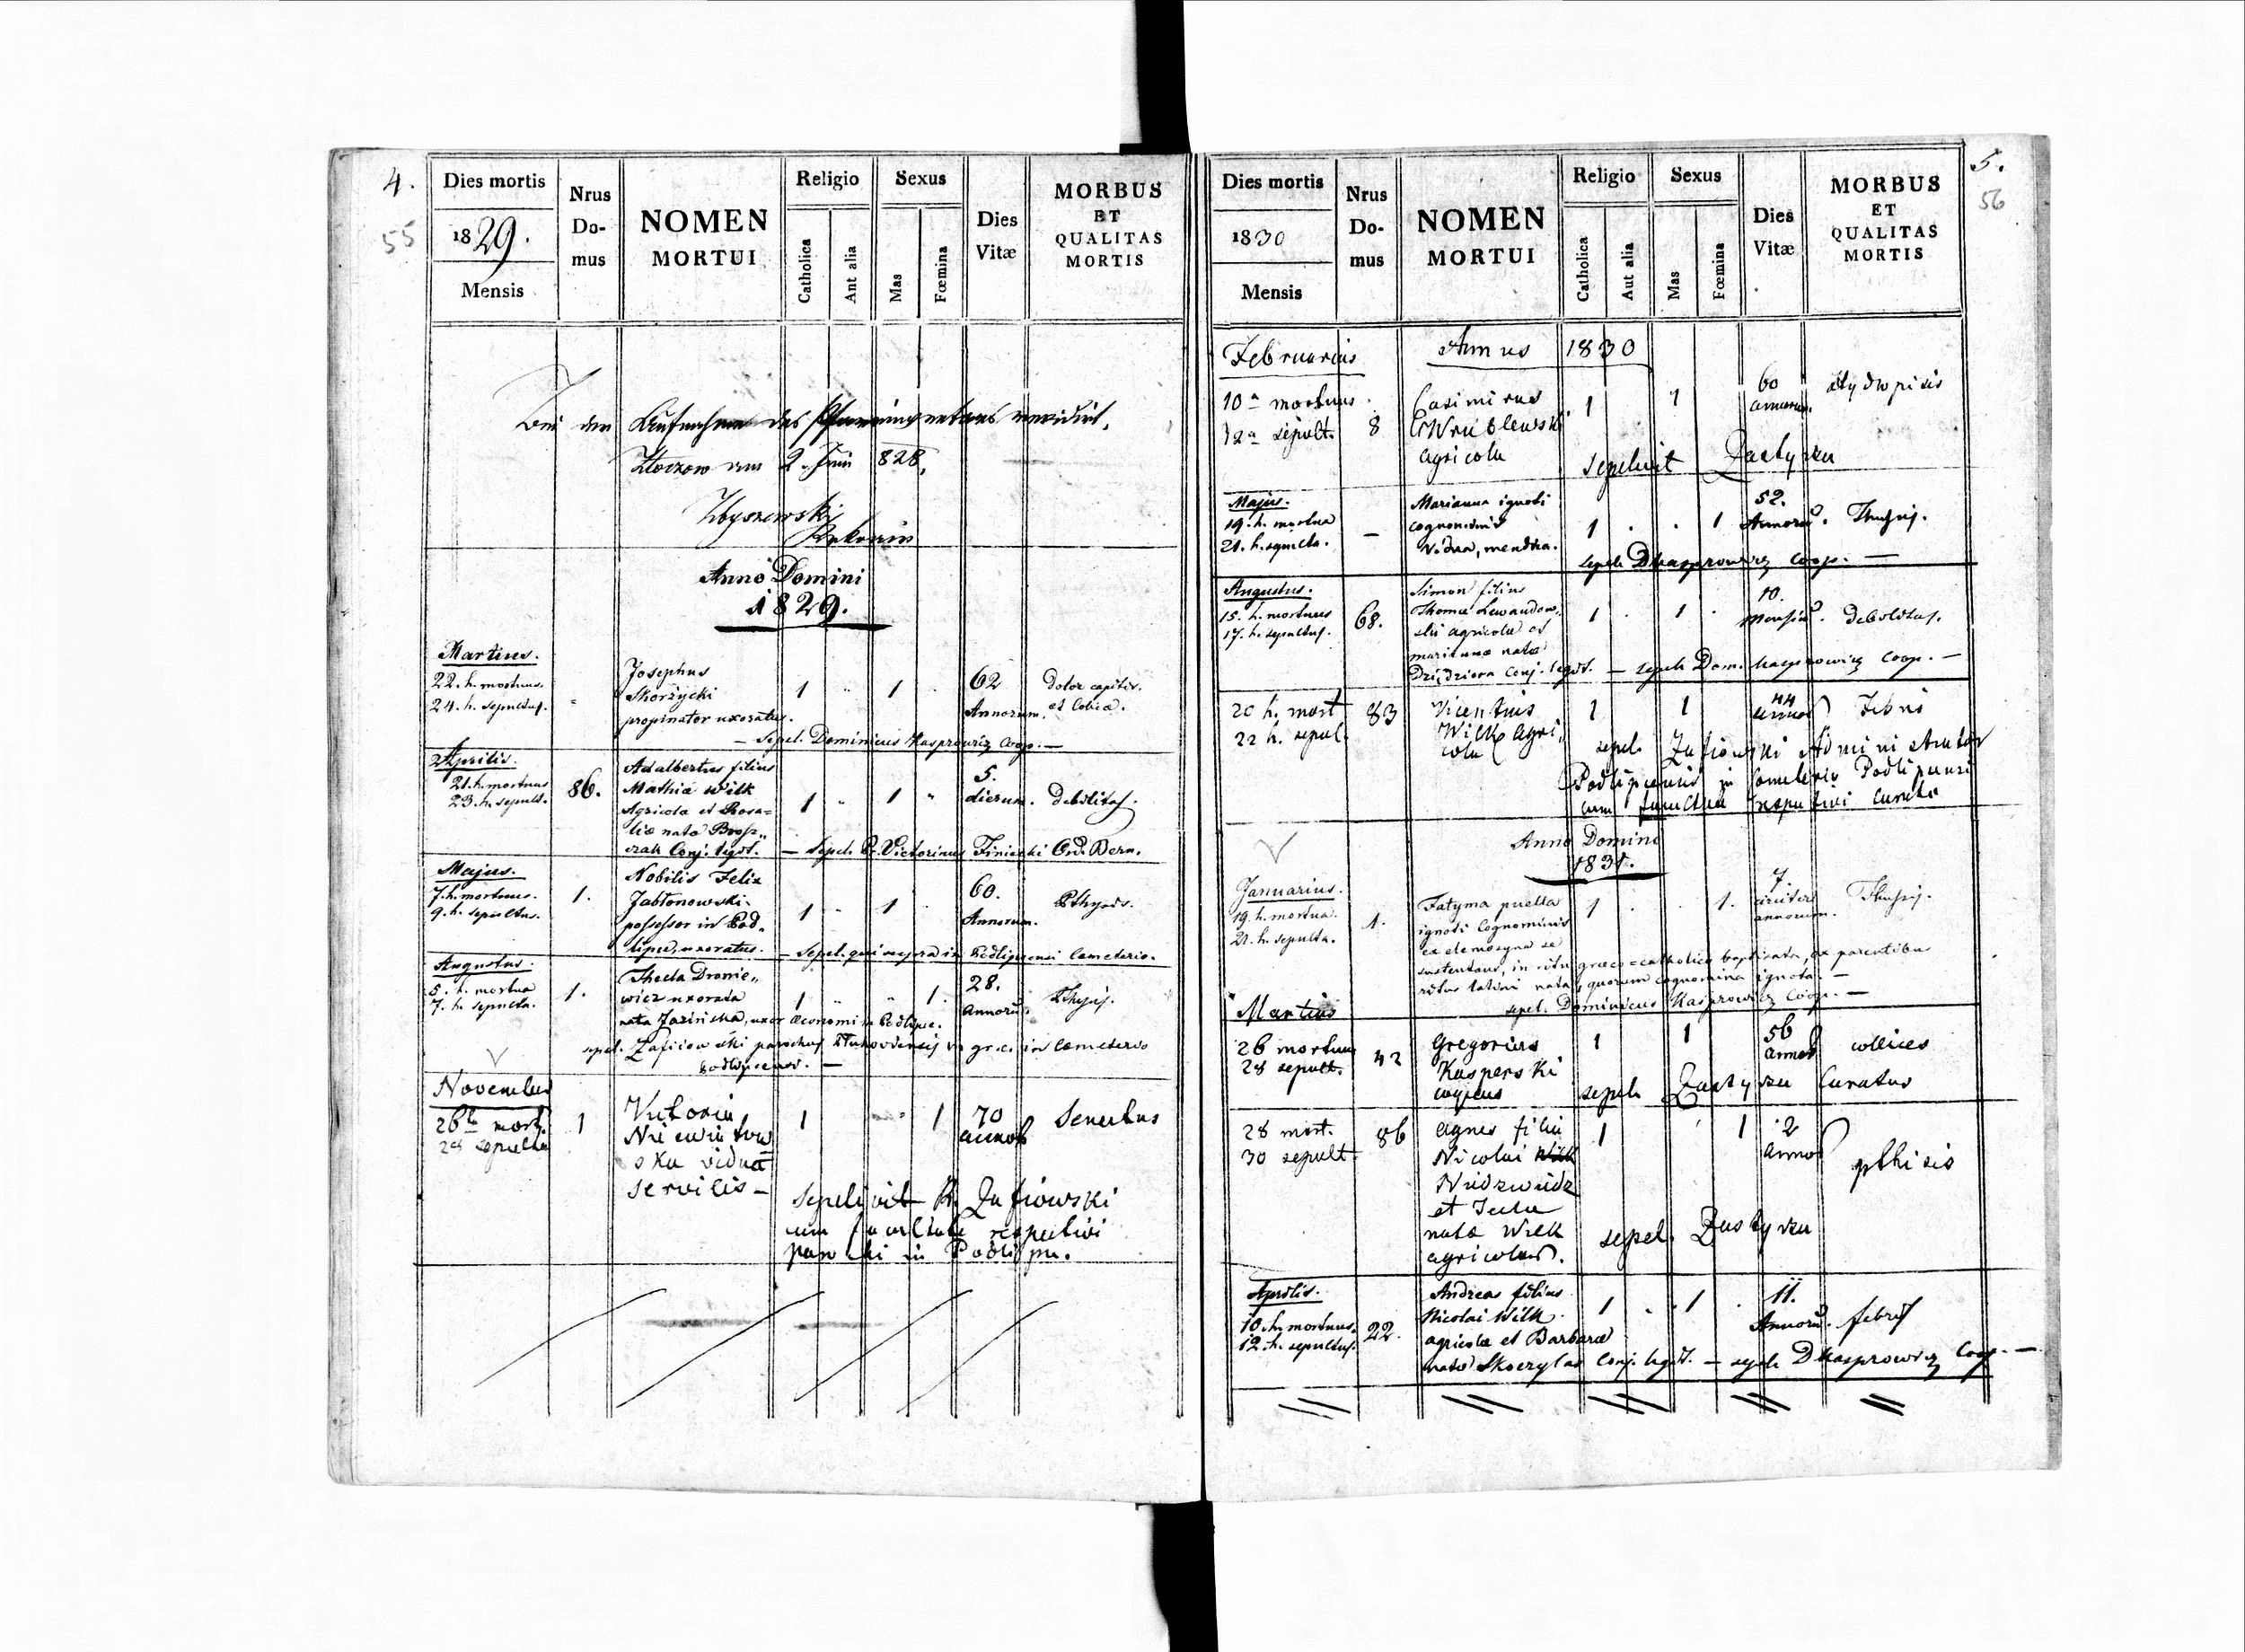 4.
55
Dies mortis
1829.
Mensis
Nrus
Do-
mus
NOMEN
MORTUI
Religio
Catholica
Aut alia
Sexus
Mas
Fœmina
Dies
Vitæ
MORBUS
ET
QUALITAS
MORTIS
Bei der Aufnahme des revidirt.
Złoczow am 2. Juni 828.
Zbyszewski
Anno Domini
1829.
Martius.
22. h. mortuus.
24. h. sepultus.
Josephus
Skorzycki
propinator uxoratus.
1 1
62
Annorum.
Dolor capitis.
et Colica.
– Sepel. Dominicus Kasprowicz Coop. –
Aprilis.
21. h. mortuus
23. h. sepult.
86.
Adalbertus filius
Mathiæ Wilk
Agricolæ et Rosa=
liæ natæ
czak Conj. legit.
1 1
5.
dierum.
Debilitas.
– Sepel. Pr. Victorinus Finiecki Ord. Bern.
Majus.
7. h. mortuus.
9. h. sepultus.
1.
Nobilis Felix
Jabłonowski
possessor in Pod„
lipce, uxoratus.
1 1
60.
Annorum.
– Sepel. qui supra in Podlipcensi Cæmeterio.
Augustus.
5. h. mortua
7. h. sepulta.
1.
Thecla Dronie„
wicz uxorata
nata Jasińska, uxor œconomi in Podlipce.
1 1.
28.
Annorū.
sepel. Zafiowski parochus in gr. c. in Cæmeterio
Podlipcensi. –
November
26 mort.
28 sepulta
1
Victoria
ska vidua
servilis –
1 1
70
annor
Senectus
sepelivit R. Zafiowski
cum facultate respectivi
parochi in Podlipce.
5.
56
Dies mortis
1830
Mensis
Nrus
Do-
mus
NOMEN
MORTUI
Religio
Catholica
Aut alia
Sexus
Mas
Fœmina
Dies
Vitæ
MORBUS
ET
QUALITAS
MORTIS
Februarius
Annus 1830
10a mortuus
12a sepult.
8
Casimirus
Wrublewski
agricola
1 1
60
annorum.
Hydropisis
sepelivit Zastyrzu
Majus.
19. h. mortua
21. h. sepulta.
–
Marianna ignoti
cognominis
vidua, mendica.
1 1
52.
Annorū.
sepel. D Kasprowicz Coop. –
Augustus.
15. h. mortuus
17. h. sepultus.
68.
Simon filius
Thomæ Lewandow„
ski agricolæ et
Mariannæ natæ
Dziędziora Conj. legit. – sepel. Dom. Kasprowicz Coop. –
1 1
10.
Mensiū.
Debilitas.
20 h. mort
22 h. sepul.
83
Vicentius
Wilk Agri„
cola
1 1
44
annor
Febris
sepel. Zafiowski Administrator
Podlipcensis in Cæmeterio Podlipcensi
cum respectivi Curati
Anno Domini
1831.
Januarius.
19. h. mortua.
21. h. sepulta.
1.
Fatyma puella
ignoti Cognominis
ex elemosyna se
sustentans, in ritu græco=catholico baptisata, ex parentibus
ritus latini nata, quorum cognomina ignota. –
1 1.
7.
circiter
annorum.
sepel. Dominicus Kasprowicz Coop. –
Martius
26 mortuus
28 sepult.
42
Gregorius
Kasperski
1 1
56
annor
collices
sepel. Zastyrzu Curatus
28 mort.
30 sepult.
86
Agnes filia
Nicolai Wilk
Nidzwidz
et Teclæ
natæ Wilk
agricolar.
1 1
2
annor
pthisis
sepel. Zastyrzu
Aprilis.
10. h. mortuus.
12. h. sepultus.
22.
Andreas filius
Nicolai Wilk
agricolæ et Barbaræ
natæ Skoczylas Conj. legit. – sepel. D Kasprowicz Coop. –
1 1
11.
Annorū.
febris